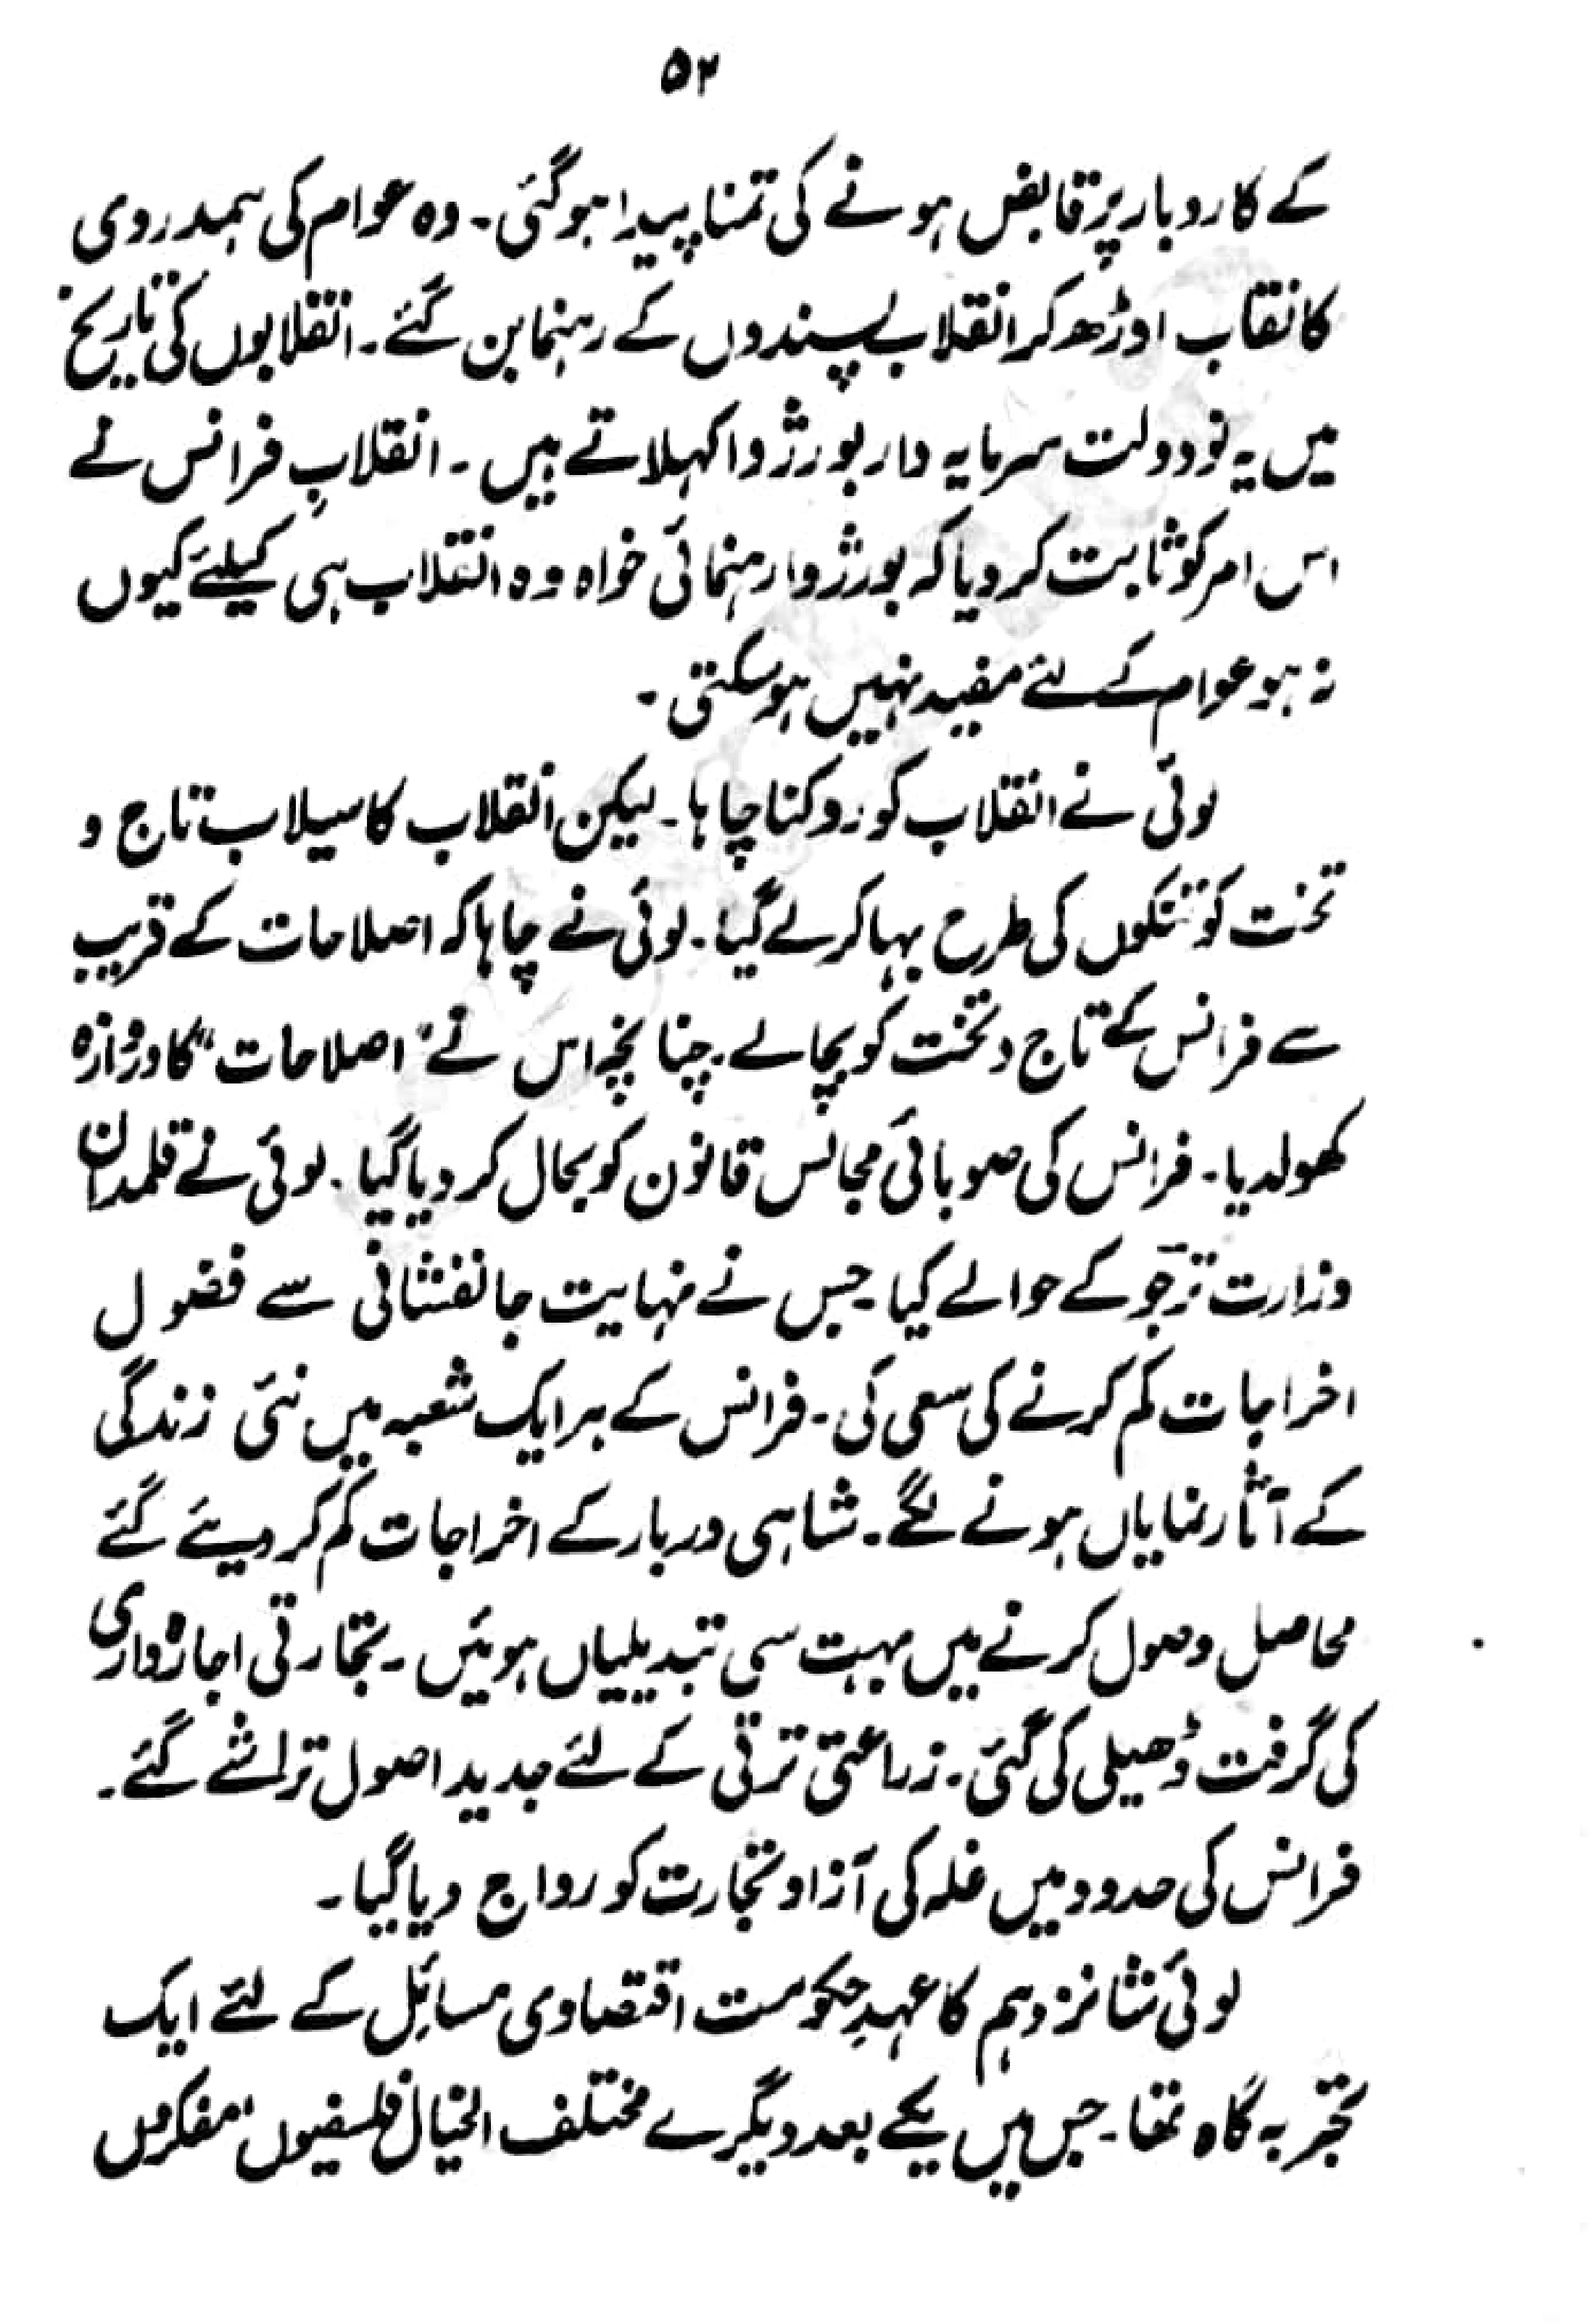 ۵۲
کے کاروبار پر قابض ہونے کی تمنا پیدا ہو گئی۔ وہ عوام کی ہمدردی
کا نقاب اوڑھ کر انقلاب پسندوں کے رہنما بن گئے۔ انقلابوں کی تاریخ
میں یہ نو دولت سرمایہ دار بورژوا کہلاتے ہیں۔ انقلابِ فرانس نے
اس امر کو ثابت کر دیا کہ بورژوا رہنمائی خواہ وہ انقلاب ہی کیلئے کیوں
نہ ہو عوام کے لئے مفید نہیں ہو سکتی۔
لوئی نے انقلاب کو روکنا چاہا۔ لیکن انقلاب کا سیلاب تاج و
تخت کو تنکوں کی طرح بہا کر لے گیا۔ لوئی نے چاہا کہ اصلاحات کے فریب
سے فرانس کے تاج و تخت کو بچا لے۔ چنانچہ اس نے "اصلاحات" کا دروازہ
کھولدیا۔ فرانس کی صوبائی مجالس قانون کو بحال کر دیا گیا۔ لوئی نے قلمدان
وزارت ترجو کے حوالے کیا۔ جس نے نہایت جانفشانی سے فضول
اخراجات کم کرنے کی سعی کی۔ فرانس کے ہر ایک شعبہ میں نئی زندگی
کے آثار نمایاں ہونے لگے۔ شاہی دربار کے اخراجات کم کر دیئے گئے
محاصل وصول کرنے میں بہت سی تبدیلیاں ہوئیں۔ تجارتی اجارہ داری
کی گرفت ڈھیلی کی گئی۔ زراعتی ترقی کے لئے جدید اصول تراشے گئے۔
فرانس کی حدود میں غلہ کی آزاد تجارت کو رواج دیا گیا۔
لوئی شانزدہم کا عہدِ حکومت اقتصادی مسائل کے لئے ایک
تجربہ گاہ تھا۔ جس میں یکے بعد دیگرے مختلف الخیال فلسفیوں، مفکروں